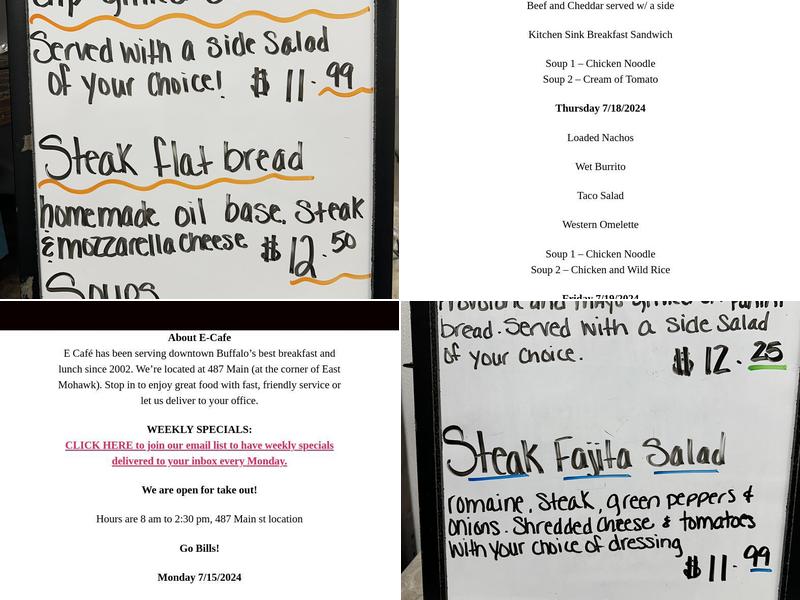 Served with a side Salad
of your choice! $11.99
Steak flat bread
homemade oil base. Steak
& mozzarella cheese $12.50
Soups
Beef and Cheddar served w/ a side
Kitchen Sink Breakfast Sandwich
Soup 1 – Chicken Noodle
Soup 2 – Cream of Tomato
Thursday 7/18/2024
Loaded Nachos
Wet Burrito
Taco Salad
Western Omelette
Soup 1 – Chicken Noodle
Soup 2 – Chicken and Wild Rice
Friday 7/19/2024
About E-Cafe
E Café has been serving downtown Buffalo’s best breakfast and
lunch since 2002. We’re located at 487 Main (at the corner of East
Mohawk). Stop in to enjoy great food with fast, friendly service or
let us deliver to your office.
WEEKLY SPECIALS:
CLICK HERE to join our email list to have weekly specials
delivered to your inbox every Monday.
We are open for take out!
Hours are 8 am to 2:30 pm, 487 Main st location
Go Bills!
Monday 7/15/2024
Provolone and mayo grilled on Panini
bread. Served with a side Salad
of your choice. $12.25
Steak Fajita Salad
romaine, Steak, green peppers &
onions. Shredded cheese & tomatoes
with your choice of dressing
$11.99